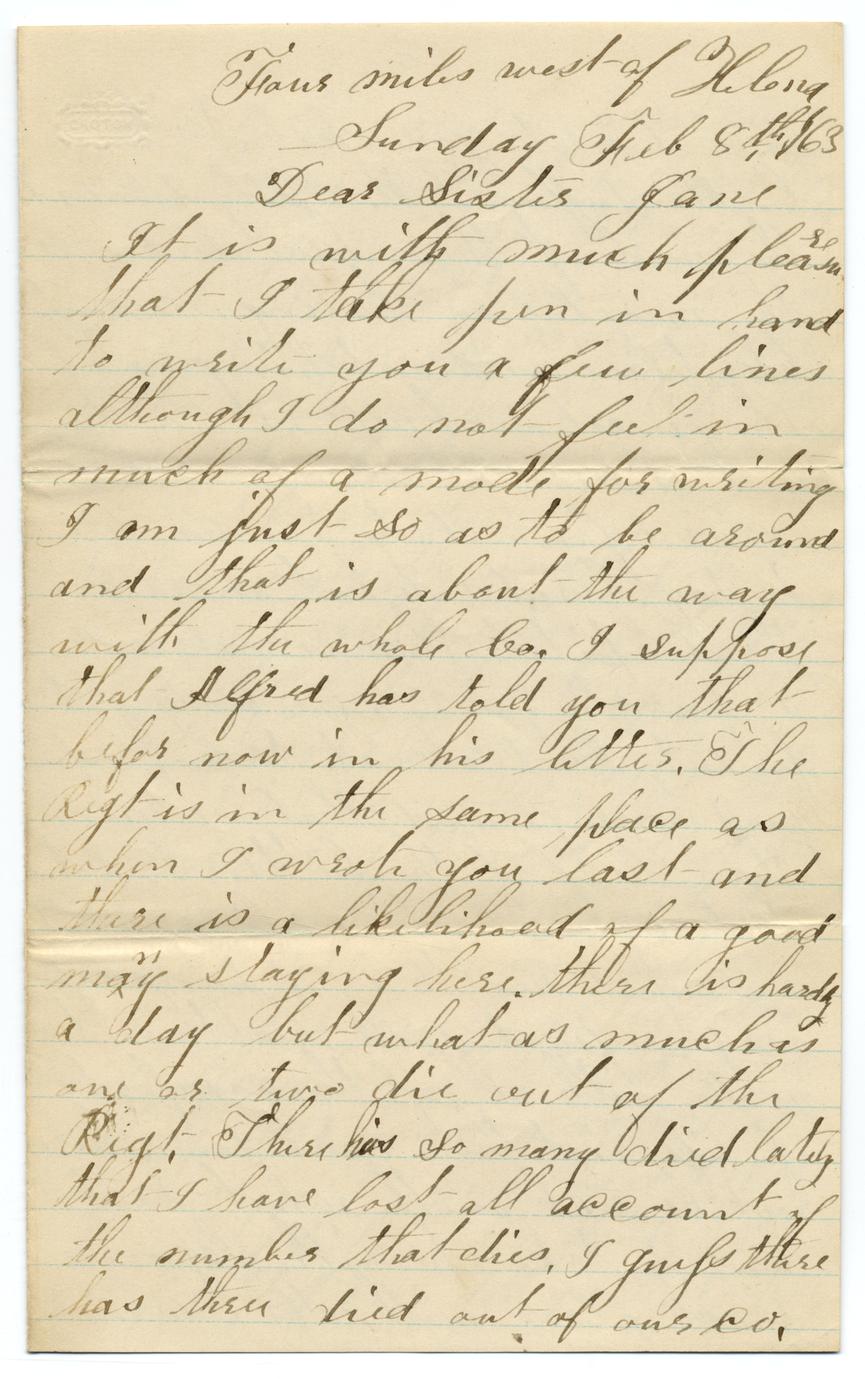 Four miles west of Helena
Sunday Feb 8th, /63
Dear Sister Jane
It is with much pleasure
that I take pen in hand
to write you a few lines
although I do not feel in
much of a mode for writing
I am just so as to be around
and that is about the way
with the whole Co. I suppose
that Alfred has told you that
befor now in his letter. The
Regt is in the same place as
when I wrote you last and
there is a likelihood of a good
many staying here. there is hardly
a day but what as much as
one or two die out of the
Regt. There has so many died lately
that I have lost all account of
the number that dies. I guess there
has three died out of our co.